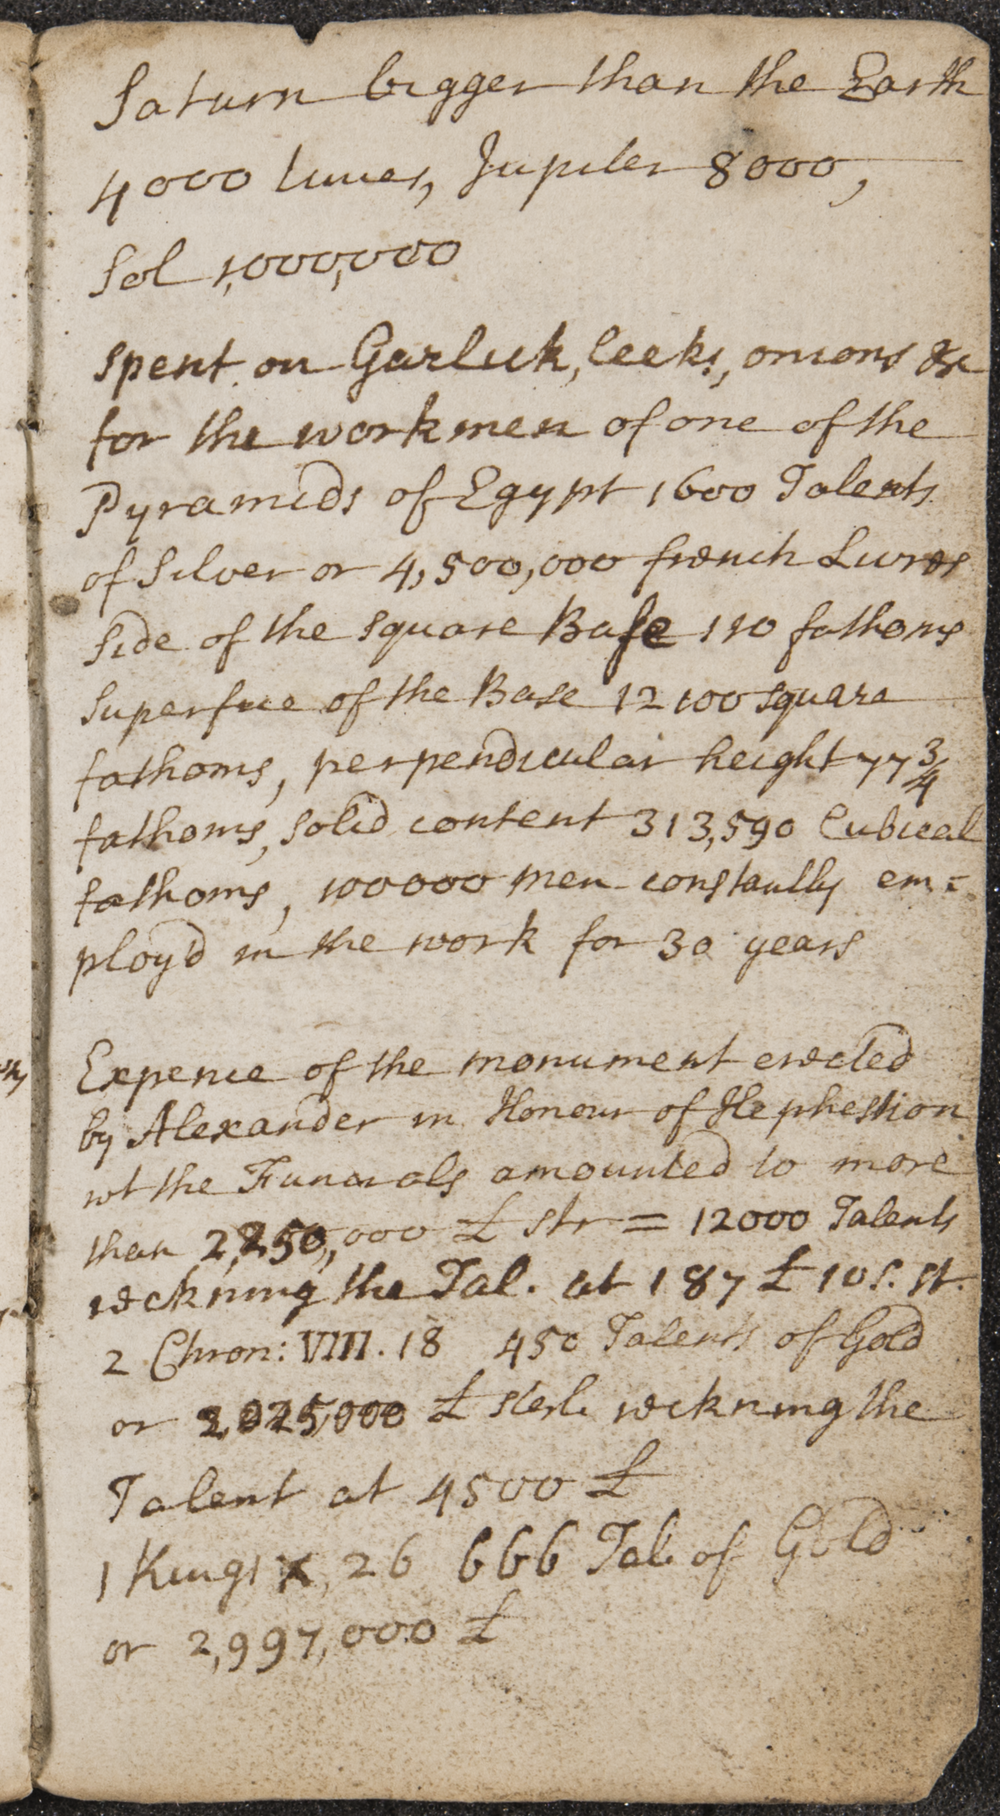 Saturn bigger than the Earth
4000 times, Jupiter 8000,
Sol 1,000,000
spent on Garlick, leeks, onions &c
for the workmen of one of the
Pyramids of Egypt 1600 Talents
of Silver or 4,500,000 french Livres
Side of the square Base 110 fathoms
Superfice of the Base 12100 square
fathoms, perpendicular height 77 3/4
fathoms, solid content 313,590 Cubical
fathoms, 100000 men constantly em=
ploy'd in the work for 30 years
Expence of the monument erected
by Alexander in Honour of Hephestion
wt the Funerals amounted to more
than 2,250,000 £ str = 12000 Talents
reckning the Tal. at 187 £ 10 s. st.
2 Chron: VIII. 18 450 Talents of Gold
or 2,025,000 £ sterl. reckning the
Talent at 4500 £
1 Kings X, 26 666 Tal. of Gold
or 2,997,000 £